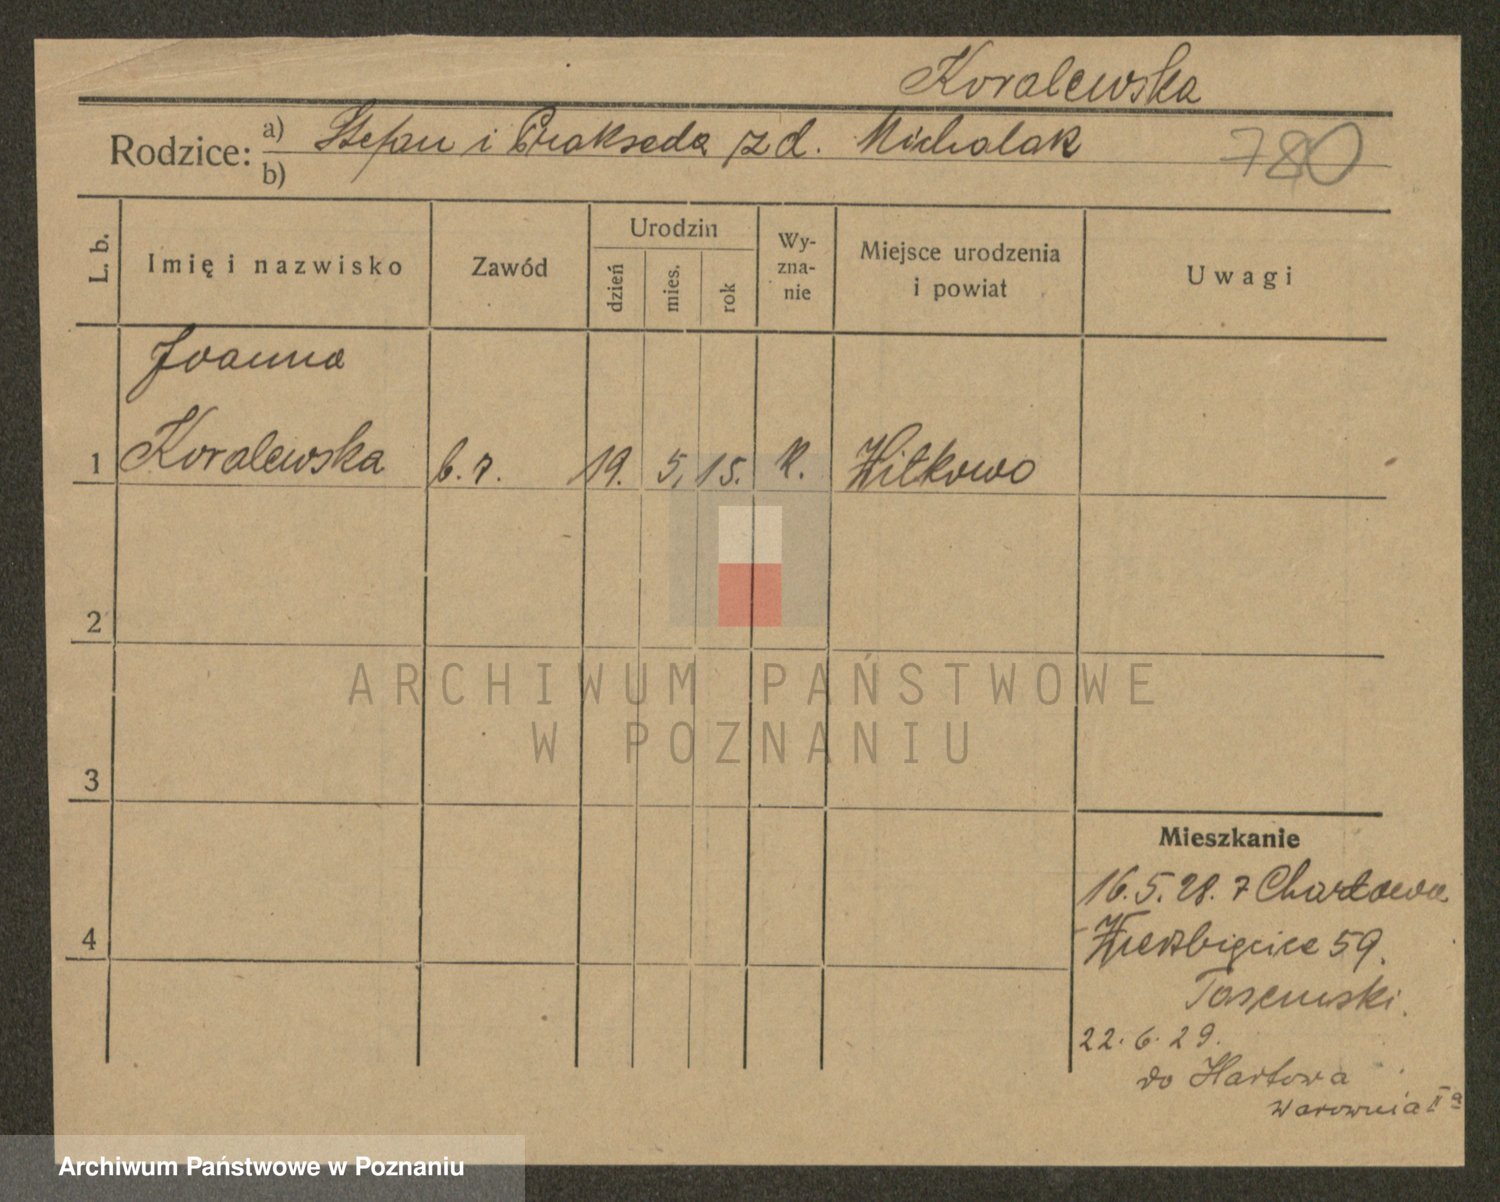 Koralewska
Rodzice: a) Stefan i Prakseda z d. Michalak
780
b)
L. b. Imię i nazwisko Zawód Urodzin dzień mies. rok Wy-zna-nie Miejsce urodzenia i powiat Uwagi
Joanna
1 Koralewska b. z. 19. 5. 15. k. Witkowo
2
3
4
Mieszkanie
16. 5. 28. z Chartowa
Wierzbięcice 59.
22. 6. 29.
do Hartowa
Warownia II a
ARCHIWUM PAŃSTWOWE
W POZNANIU
Archiwum Państwowe w Poznaniu